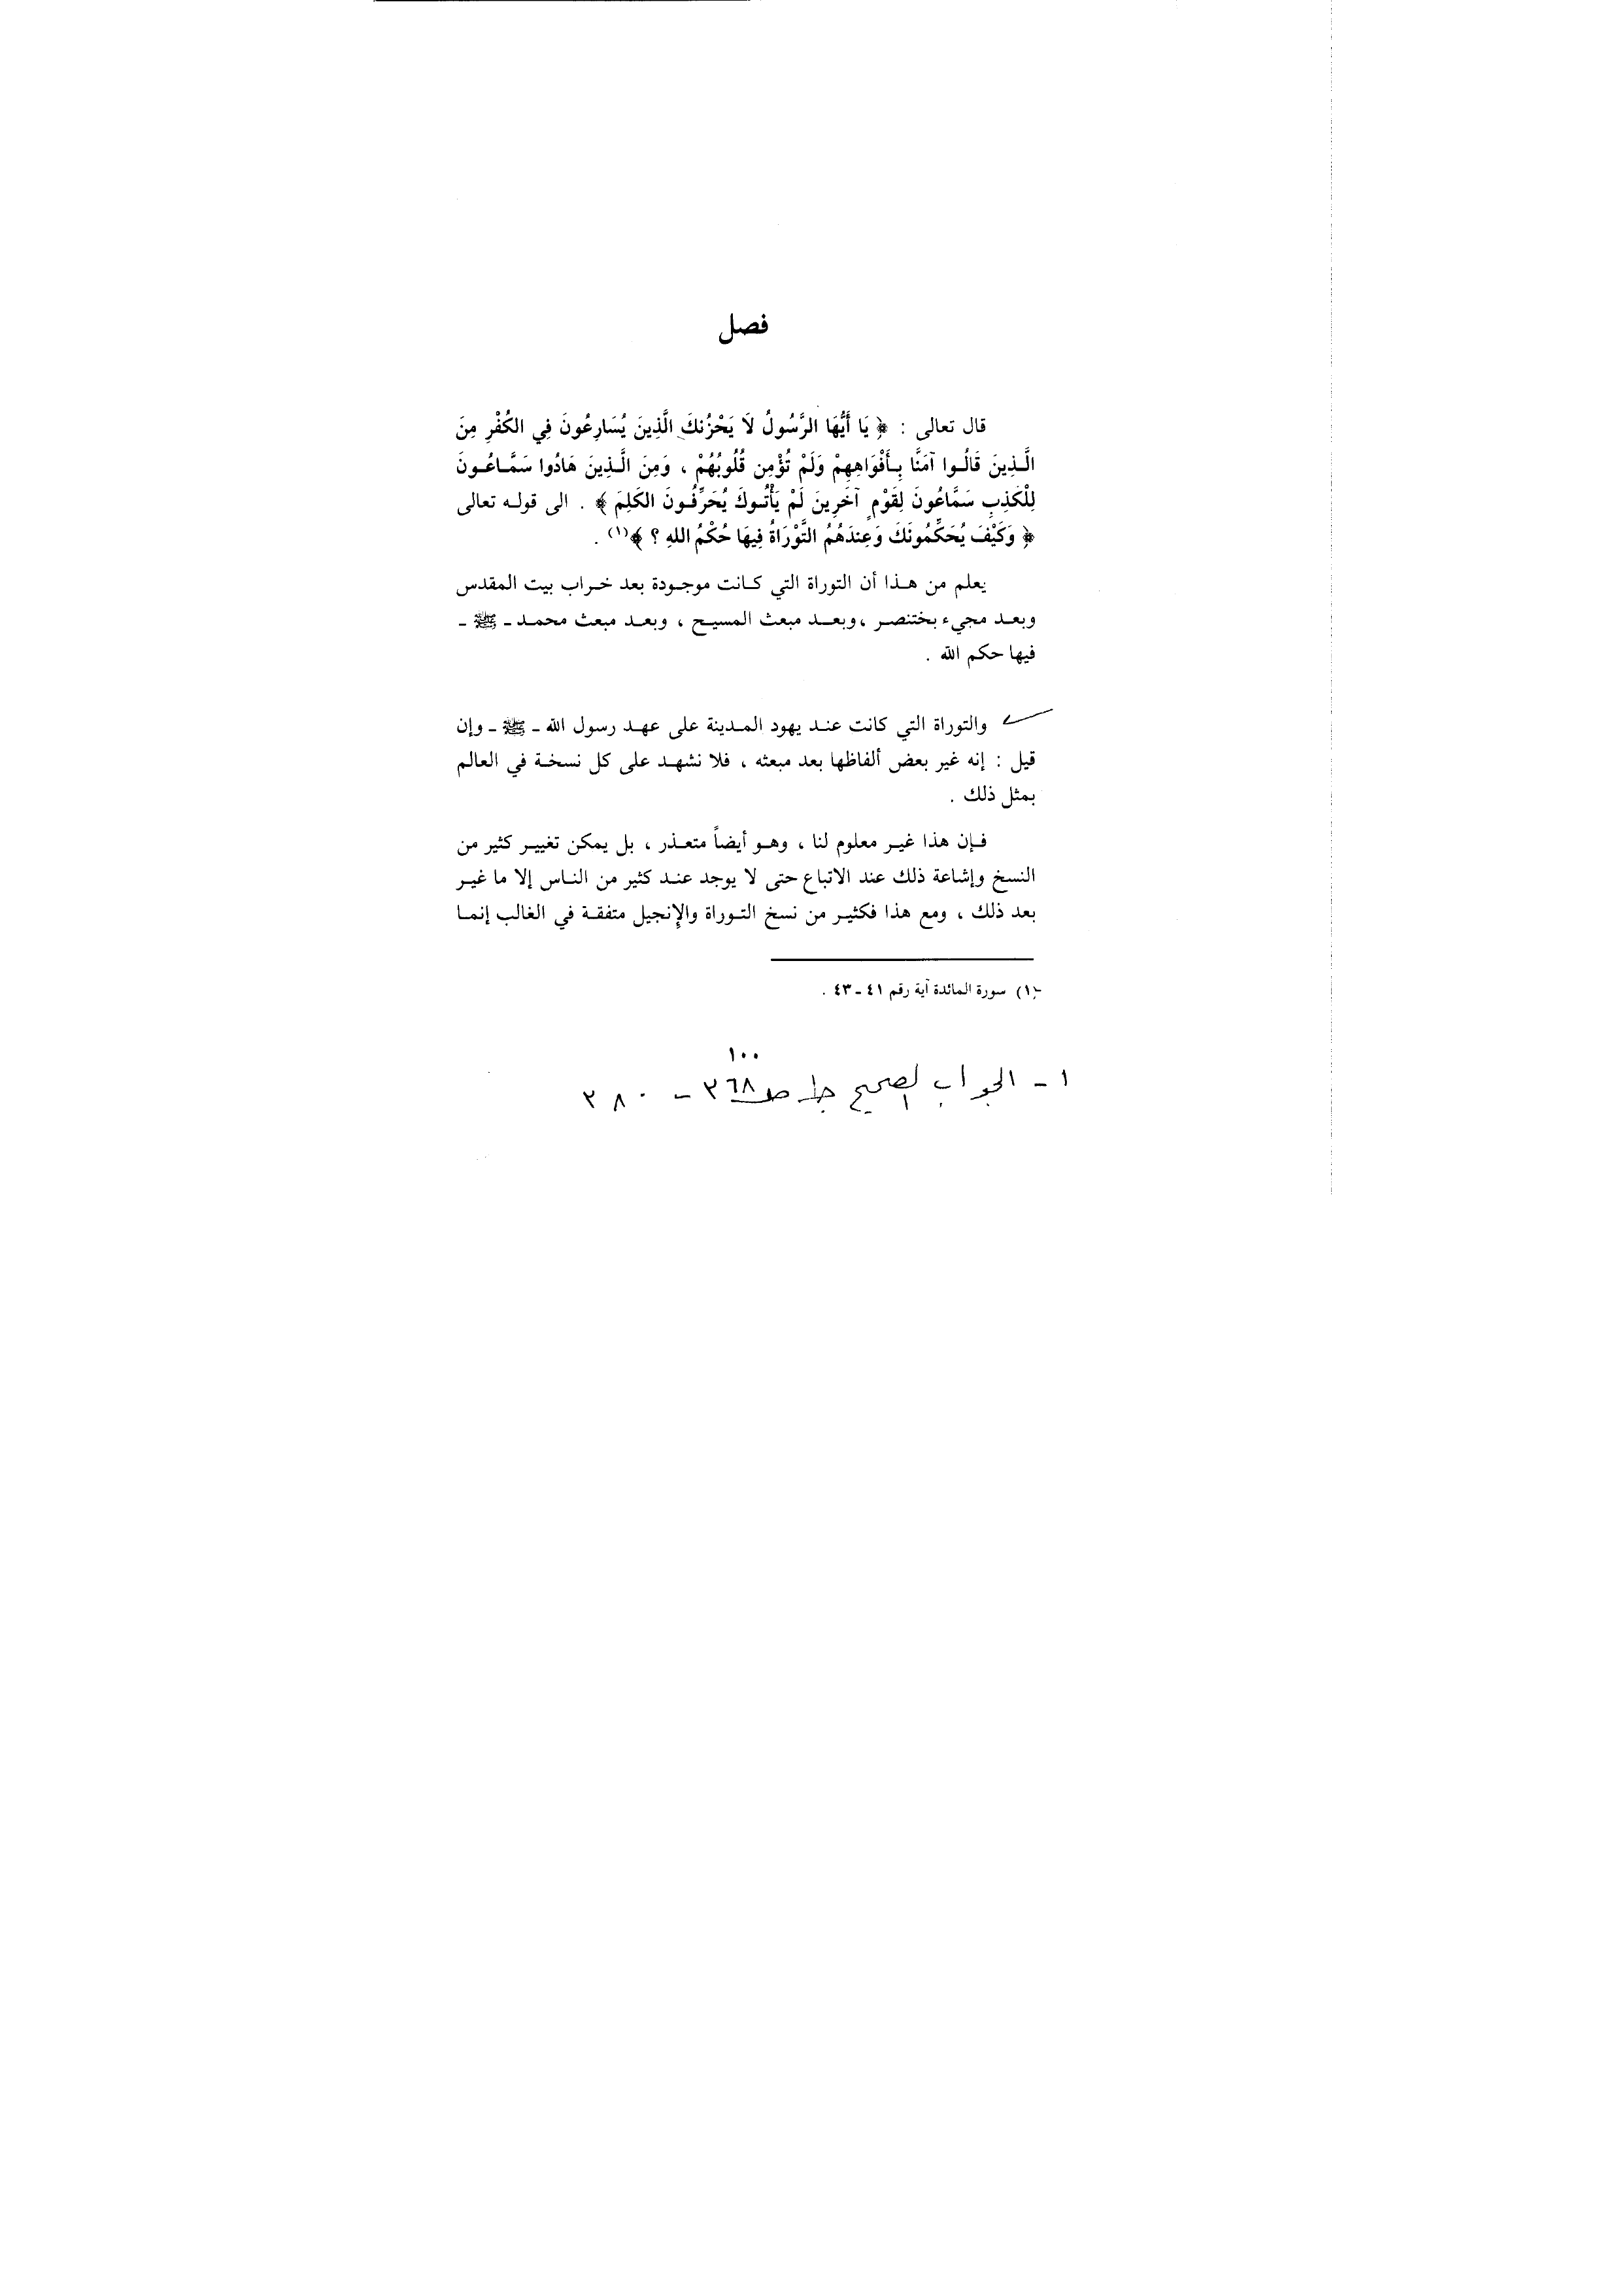 فصل
قال تعالى : ﴿ يَا أَيُّهَا الرَّسُولُ لَا يَحْزُنكَ الَّذِينَ يُسَارِعُونَ فِي الكُفْرِ مِنَ
الَّذِينَ قَالُوا آمَنَّا بِأَفْوَاهِهِمْ وَلَمْ تُؤْمِن قُلُوبُهُمْ ، وَمِنَ الَّذِينَ هَادُوا سَمَّاعُونَ
لِلْكَذِبِ سَمَّاعُونَ لِقَوْمٍ آخَرِينَ لَمْ يَأْتُوكَ يُحَرِّفُونَ الكَلِمَ ﴾ . الى قوله تعالى
﴿ وَكَيْفَ يُحَكِّمُونَكَ وَعِندَهُمُ التَّوْرَاةُ فِيهَا حُكْمُ اللهِ ؟ ﴾(١) .
يعلم من هذا أن التوراة التي كانت موجودة بعد خراب بيت المقدس
وبعد مجيء بختنصر ، وبعد مبعث المسيح ، وبعد مبعث محمد ـ ﷺ ـ
فيها حكم الله .
والتوراة التي كانت عند يهود المدينة على عهد رسول الله ـ ﷺ ـ وإن
قيل : إنه غير بعض ألفاظها بعد مبعثه ، فلا نشهد على كل نسخة في العالم
بمثل ذلك .
فإن هذا غير معلوم لنا ، وهو أيضاً متعذر ، بل يمكن تغيير كثير من
النسخ وإشاعة ذلك عند الاتباع حتى لا يوجد عند كثير من الناس إلا ما غير
بعد ذلك ، ومع هذا فكثير من نسخ التوراة والإنجيل متفقة في الغالب إنما
(١) سورة المائدة آية رقم ٤١ ـ ٤٣ .
١٠٠
١ - الجواب الصحيح ج١ ص ٣٦٨ - ٣٨٠